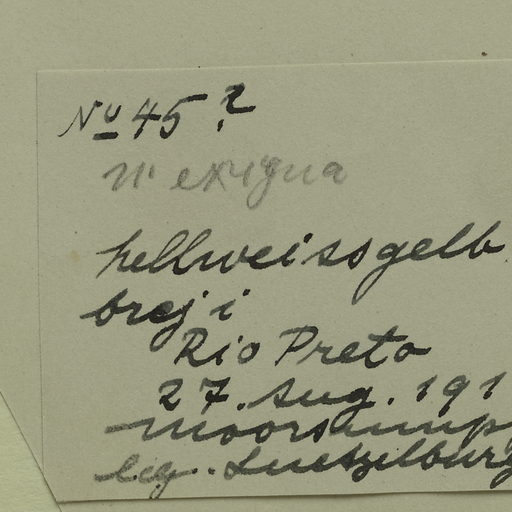 Nº 45?
exigua
hellweissgelb
breji
Rio Preto
27. Aug. 191
moorsump
leg. Luetzelburg